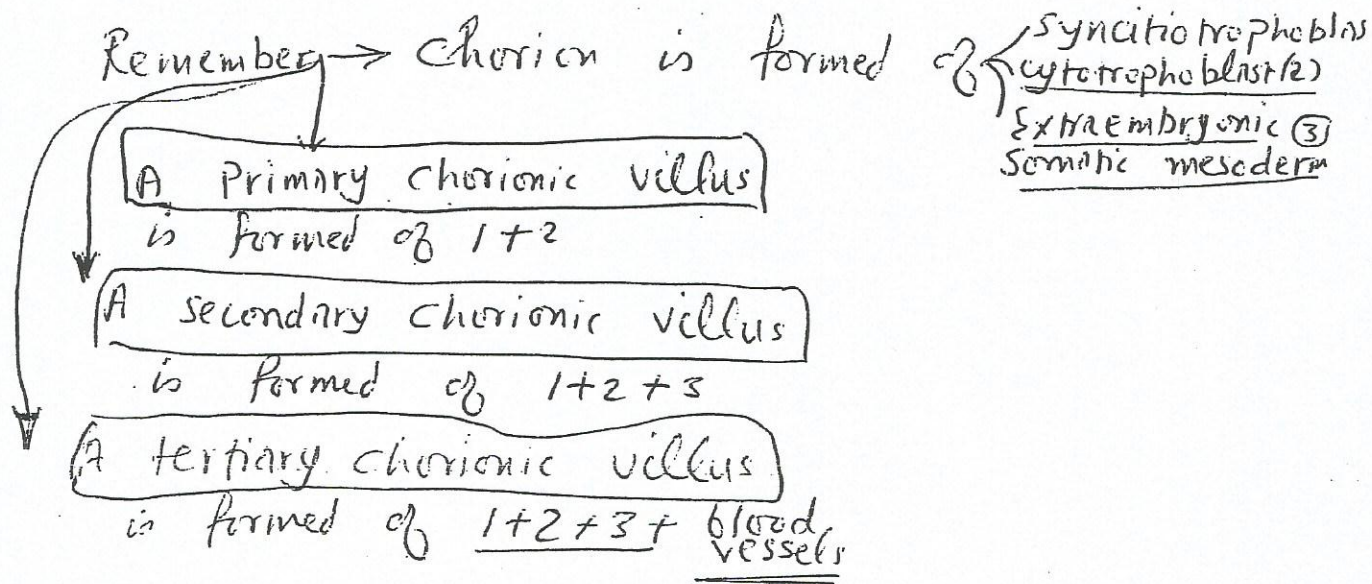 Remember → Chorion is formed of
Syncitiotrophoblas
cytotrophoblast (2)
Extraembryonic ③
Somatic mesoderm
A Primary chorionic villus
is formed of 1+2
A secondary chorionic villus
is formed of 1+2+3
A tertiary chorionic villus
is formed of 1+2+3+ blood
vessels